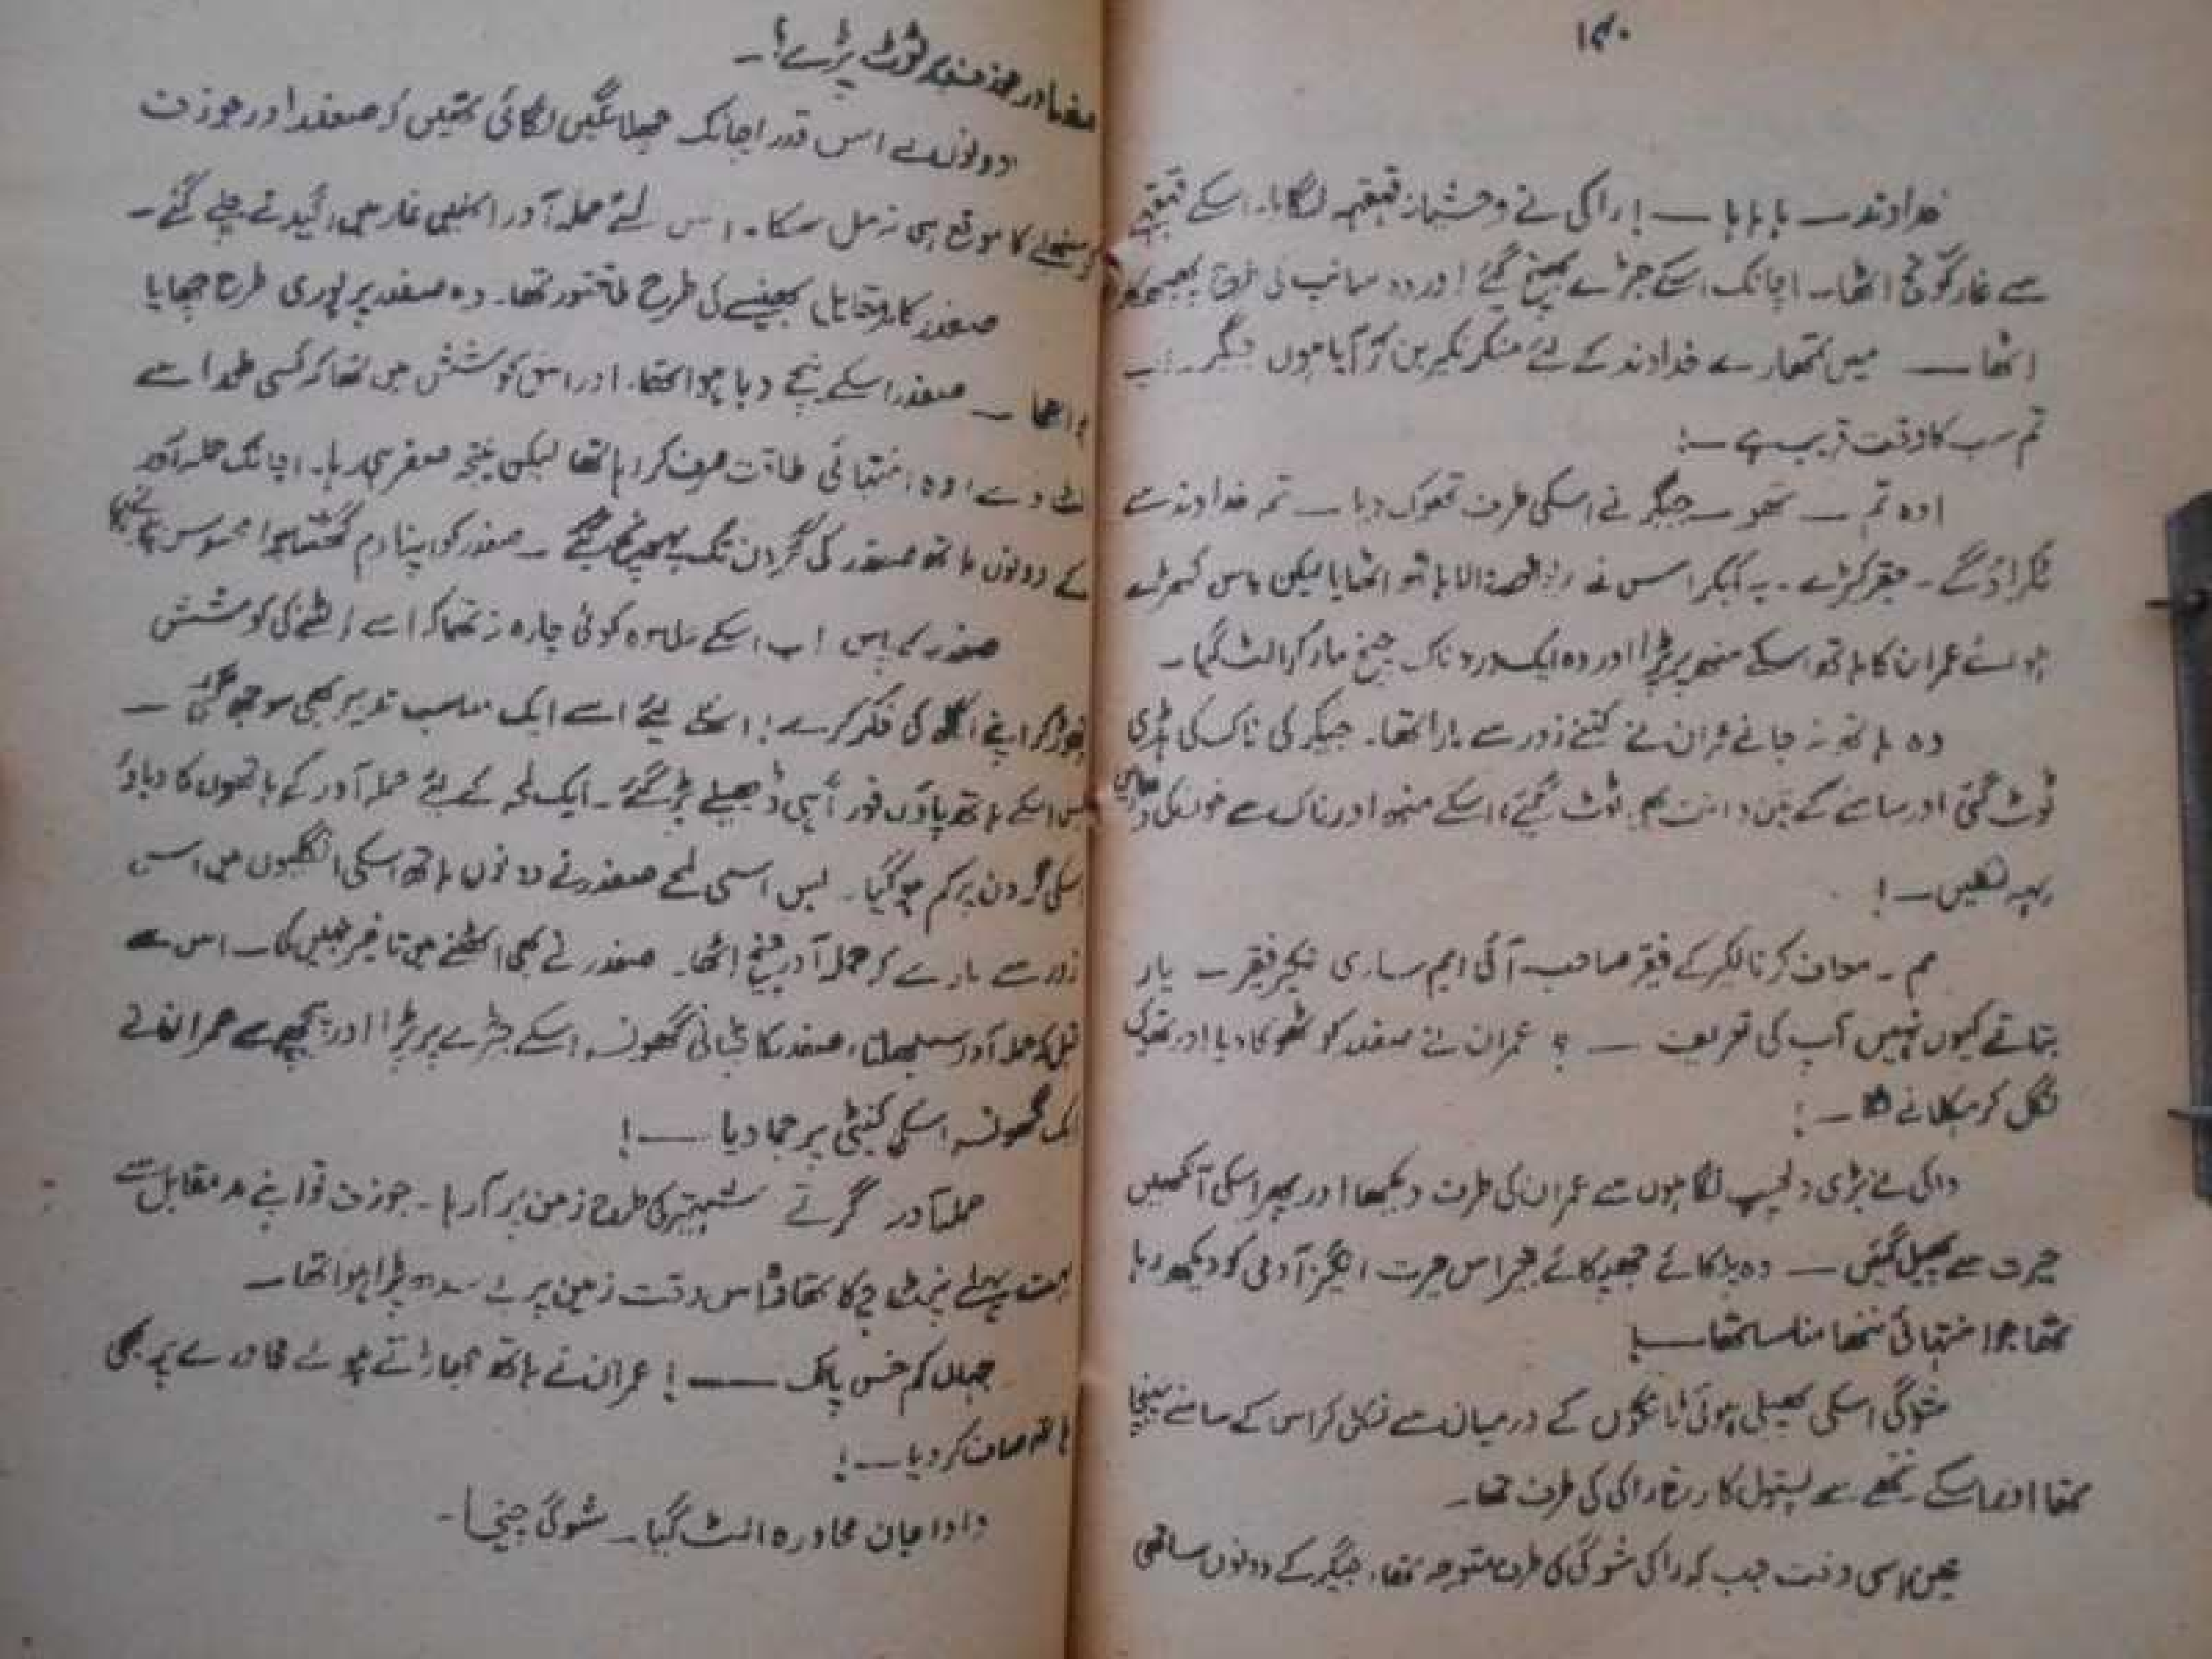 ۱۴۰
خداوند۔ ہا ہا ہا ۔۔۔ ! راکی نے وحشیانہ قہقہہ لگایا۔ اسکے قہقہے
سے غار گونج اٹھا۔ اچانک اسکے جبڑے بھینچ گئے ! اور وہ سانپ کی طرح
اٹھا ۔۔۔ میں تمھارے خداوند کے لئے منکر نکیر بن کر آیا ہوں جیگر۔
تم سب کا وقت قریب ہے ۔۔!
اوہ تم ۔۔ تھو ۔ جیگر نے اسکی طرف تھوک دیا ۔۔ تم خداوند سے
ٹکراؤ گے ۔ حقیر کیڑے ۔ یہ کہکر اس نے والا ہاتھ اٹھایا لیکن پاس کھڑے
ہوئے عمران کا ہاتھ اسکے منھ پر پڑا اور وہ ایک دردناک چیخ مار کر الٹ گیا۔
وہ ہاتھ نہ جانے عمران نے کتنے زور سے مارا تھا۔ جیگر کی ناک کی ہڈی
ٹوٹ گئی اور سامنے کے تین دانت بھی ٹوٹ گئے، اسکے منھ اور ناک سے خون کی
بہہ نکلیں ۔۔!
مم ۔ معاف کرنا لکیر کے فقیر صاحب آئی ایم ساری فقیر ۔ یار
بتاتے کیوں نہیں آپ کی تعریف ۔۔۔ ؟ عمران نے صفدر کو ٹھوکا دیا اور تھوک
نگل کر ہکلانے لگا ۔۔!
راکی نے بڑی دلچسپ نگاہوں سے عمران کی طرف دیکھا اور پھر اسکی آنکھیں
حیرت سے پھیل گئیں ۔۔ وہ پلکائے جھپکائے بغیر اس حیرت انگیز آدمی کو دیکھ رہا
تھا جو انتہائی ننھا منا سا تھا ۔!
شوگی اسکی پھیلی ہوئی ٹانگوں کے درمیان سے نکل کر اس کے سامنے پہنچا
تھا اور اسکے ننھے سے پستول کا رخ راکی کی طرف تھا۔
عین اسی وقت جب کہ راکی شوگی کی طرف متوجہ تھا، جیگر کے دونوں ساتھی
صفدر اور جوزف پر ٹوٹ پڑے !۔
دونوں نے اس قدر اچانک چھلانگیں لگائی تھیں کہ صفدر اور جوزف
کو سنبھلنے کا موقع ہی نہ مل سکا۔ اس لئے حملہ آور انہیں غار میں رگیدتے چلے گئے ۔
صفدر کا مدمقابل بھینسے کی طرح طاقتور تھا۔ وہ صفدر پر پوری طرح چھایا
ہوا تھا ۔ صفدر اسکے نیچے دبا ہوا تھا۔ اور اس کوشش میں تھا کہ کسی طرح اسے
الٹ دے ! وہ انتہائی طاقت صرف کر رہا تھا لیکن نتیجہ صفر ہی رہا۔ اچانک حملہ آور
کے دونوں ہاتھ صفدر کی گردن تک پہنچ گئے ۔ صفدر کو اپنا دم گھٹتا ہوا محسوس
صفدر کے پاس اب اسکے علاوہ کوئی چارہ نہ تھا کہ اسے الٹنے کی کوشش
چھوڑ کر اپنے کی فکر کرے ! اسکے لئے اسے ایک مناسب تدبیر بھی سوجھ گئی ۔
بس اسکے ہاتھ پاؤں فوراً ہی ڈھیلے پڑ گئے ۔ ایک لمحہ کے لئے حملہ آور کے ہاتھوں کا دباؤ
اسکی گردن پر کم ہو گیا ۔ بس اسی لمحے صفدر نے دونوں ہاتھ اسکی انگلیوں میں اس
زور سے مارے کہ حملہ آور چیخ اٹھا۔ صفدر نے بھی اٹھنے میں تاخیر نہیں کی۔ اس سے
قبل کہ حملہ آور سنبھلتا، صفدر کا گھونسہ اسکے جبڑے پر پڑا اور پیچھے سے عمران نے
ایک گھونسہ اسکی کنپٹی پر جما دیا ۔۔۔!
حملہ آور گرتے شہتیر کی طرح زمین پر آ رہا ۔ جوزف تو اپنے مدمقابل سے
بہت پہلے نپٹ چکا تھا اس وقت زمین پر بے سدھ پڑا ہوا تھا ۔
جہاں کم خس پاک ۔۔۔! عمران نے ہاتھ جھاڑتے ہوئے محاورے پر بھی
ہاتھ صاف کر دیا ۔۔!
دادا جان محاورہ الٹ گیا ۔ شوگی چیخا ۔